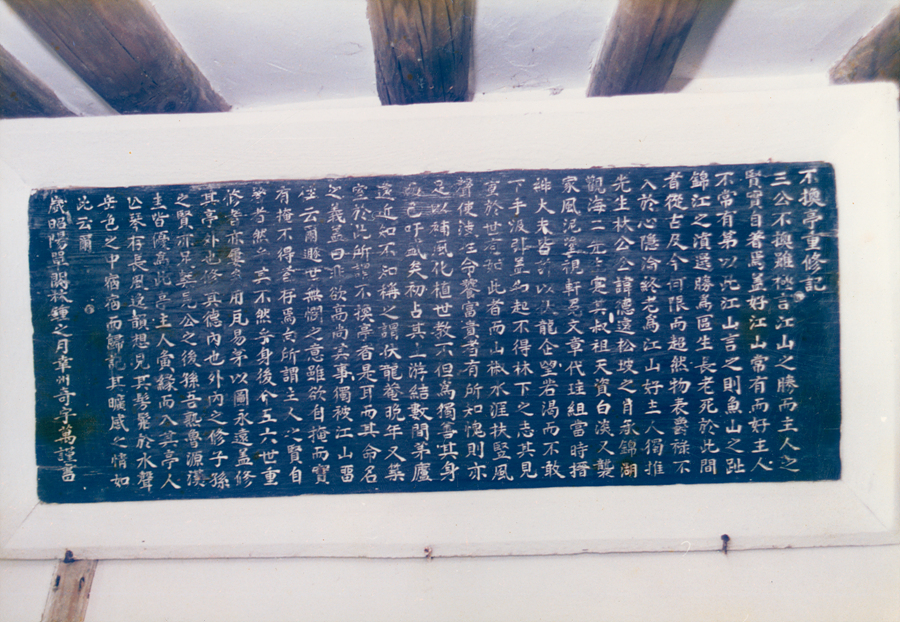 不換亭重修記
三公不換雖秋言江山之勝而主人之
賢實自著焉盖好江山常有而好主人
不常有第以此江山言之則魚山之趾
錦江之濱選勝爲區生長老死於此間
者從古及今何限而超然物表爵祿不
入於心隱淪終老爲江山好主人獨推
先生林公公諱德遠松坡之肖承錦湖
觀海二元之寔其叔祖天資白淡人襲
家風泥塗視軒冕文章代珪組當時搢
紳大夫皆 以人龍企望若渴而不敢
下手汲引盖 起不得林下之志其見
重於世 此者而山樵水涯扶竪風
聲使 命 富貴者有所如愧則亦
足以補風化植世教不但爲獨善其身
而已吁 矣初占其上游結數間茅廬
遠近知不知稱之謂伏龍菴晩年又築
室於此所謂不換亭者是耳而其命名
之義盖曰非欲高尚其事獨被江山留
 云爾遯世無憫之意雖欲自掩而實
有掩不得者存焉 所謂主人之賢自
著者然 其不然乎身後今五六世重
修者亦屢 用瓦易茅以圖永遠盖修
其亭外也修其德內也外內之修子孫
之賢亦 見公之後孫吾 魯源漢
圭皆 此是主人 緣而入其亭人
 琴存長風遺韻想見其髣髴於水聲
岳色之中 宿而歸記其曠感之情如
此云爾
歲昭陽 閹 鍾之月韋州奇宇萬謹書